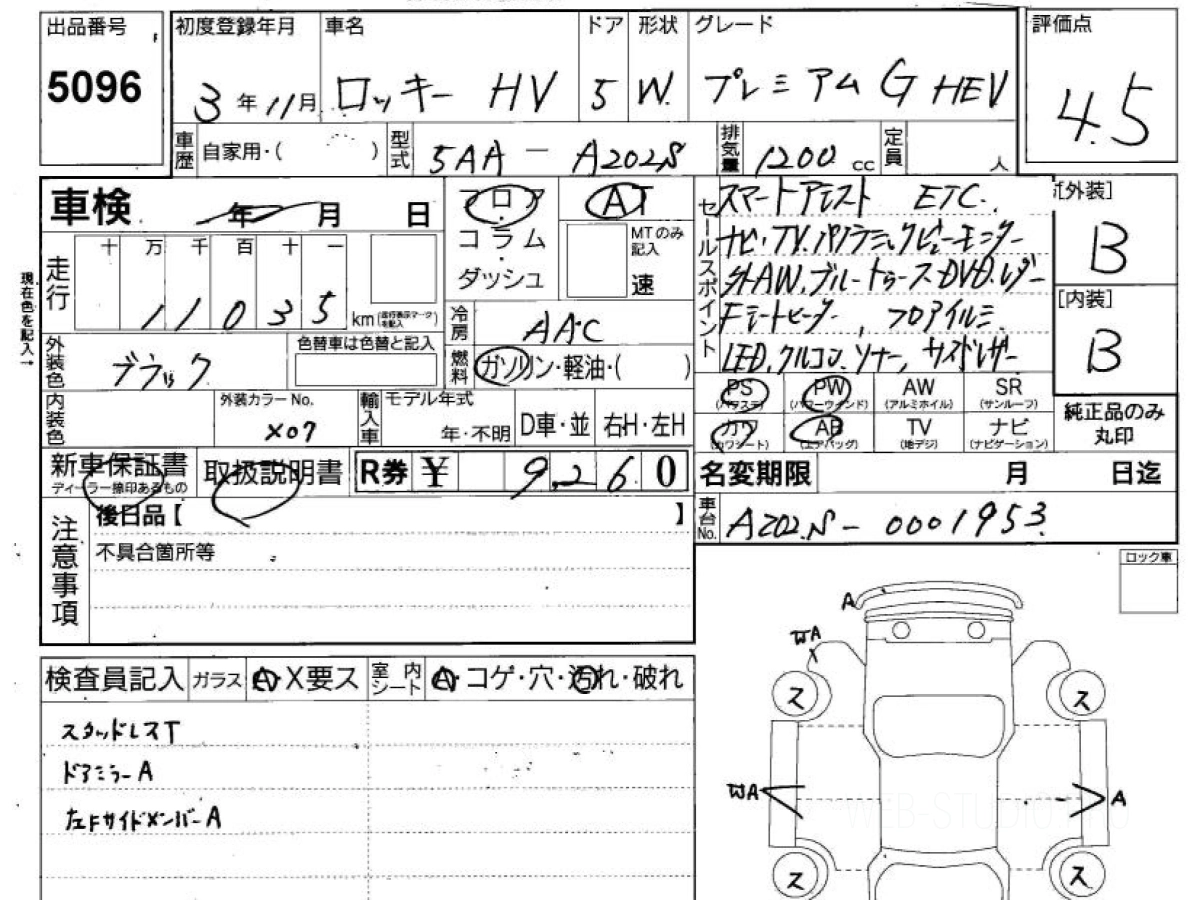 出品番号 初度登録年月 車名 ドア 形状 グレード 評価点
5096 3年11月 ロッキー HV 5 W. プレミアム G HEV 4.5
車歴 自家用・( ) 型式 5AA - A202S 排気量 1200 cc 定員 人
車検 年 月 日
フロア・コラム・ダッシュ
AT
MTのみ記入
速
セールスポイント
スマートアシスト ETC.
ナビ・TV.パノラミックビューモニター
外AW.ブルートゥースDVD.レザー
Fシートヒーター, フロアイルミ
LED.クルコン.ソナー,サイドレザー
[外装]
B
[内装]
B
現在色を記入→
走行 十 万 千 百 十 一
11035 km (走行表示マークを記入)
冷房 AAC
外装色 ブラック
色替車は色替と記入
燃料 ガソリン・軽油・( )
内装色
外装カラーNo.
X07
輸入車 モデル年式
年・不明 D車・並 右H・左H
PS (パワステ) PW (パワーウインド) AW (アルミホイル) SR (サンルーフ)
カワ (カワシート) AB (エアバッグ) TV (地デジ) ナビ (ナビゲーション)
純正品のみ丸印
新車保証書
ディーラー捺印あるもの
取扱説明書
R券 ¥ 9,260
名変期限 月 日迄
注意事項
後日品【 】
不具合箇所等
車台No. A202S-0001953
ロック車
検査員記入 ガラス A・X要ス 室内シート A・コゲ・穴・汚れ・破れ
スタッドレスT
ドアミラーA
左FサイドメンバーA
A
WA
ス ス
WA A
ス ス
WEB-STUDIO